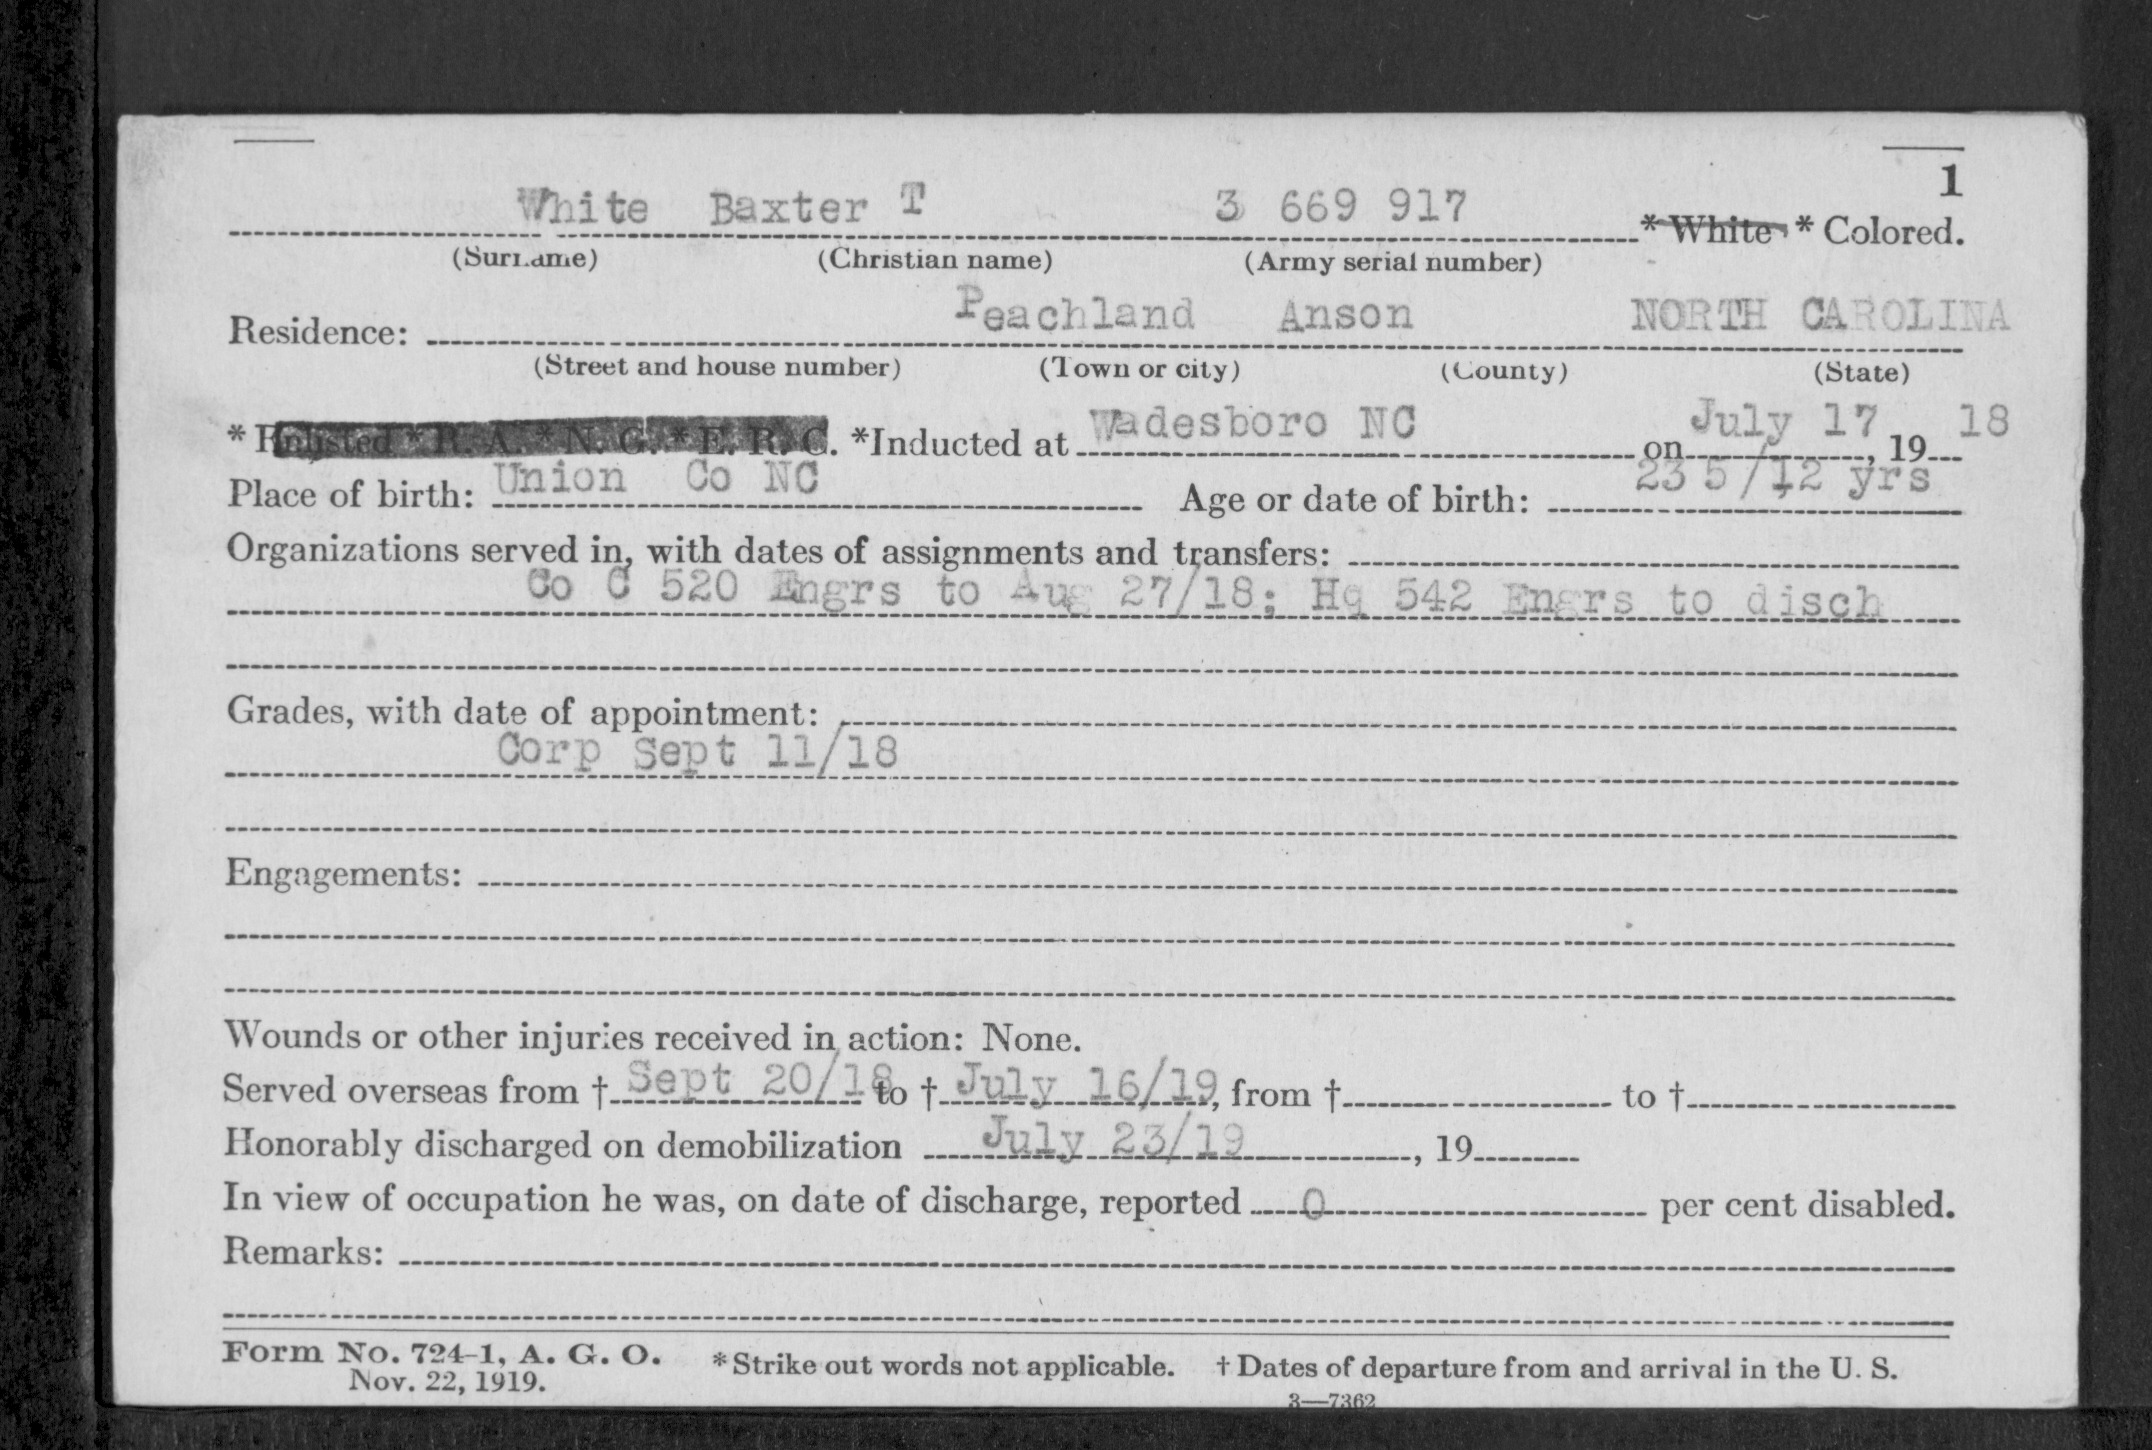 1
White Baxter T 3 669 917 * White * Colored.
(Surname) (Christian name) (Army serial number)
Peachland Anson NORTH CAROLINA
Residence:
(Street and house number) (Town or city) (County) (State)
* Enlisted * R. A. * N. G. * E. R. C. *Inducted at Wadesboro NC on July 17, 19 18
Place of birth: Union Co NC Age or date of birth: 23 5/12 yrs
Organizations served in, with dates of assignments and transfers:
Co C 520 Engrs to Aug 27/18; Hq 542 Engrs to disch
Grades, with date of appointment:
Corp Sept 11/18
Engagements:
Wounds or other injuries received in action: None.
Served overseas from † Sept 20/18 to † July 16/19, from † to †
Honorably discharged on demobilization July 23/19, 19
In view of occupation he was, on date of discharge, reported 0 per cent disabled.
Remarks:
Form No. 724-1, A. G. O. * Strike out words not applicable. † Dates of departure from and arrival in the U. S.
Nov. 22, 1919.
3—7362